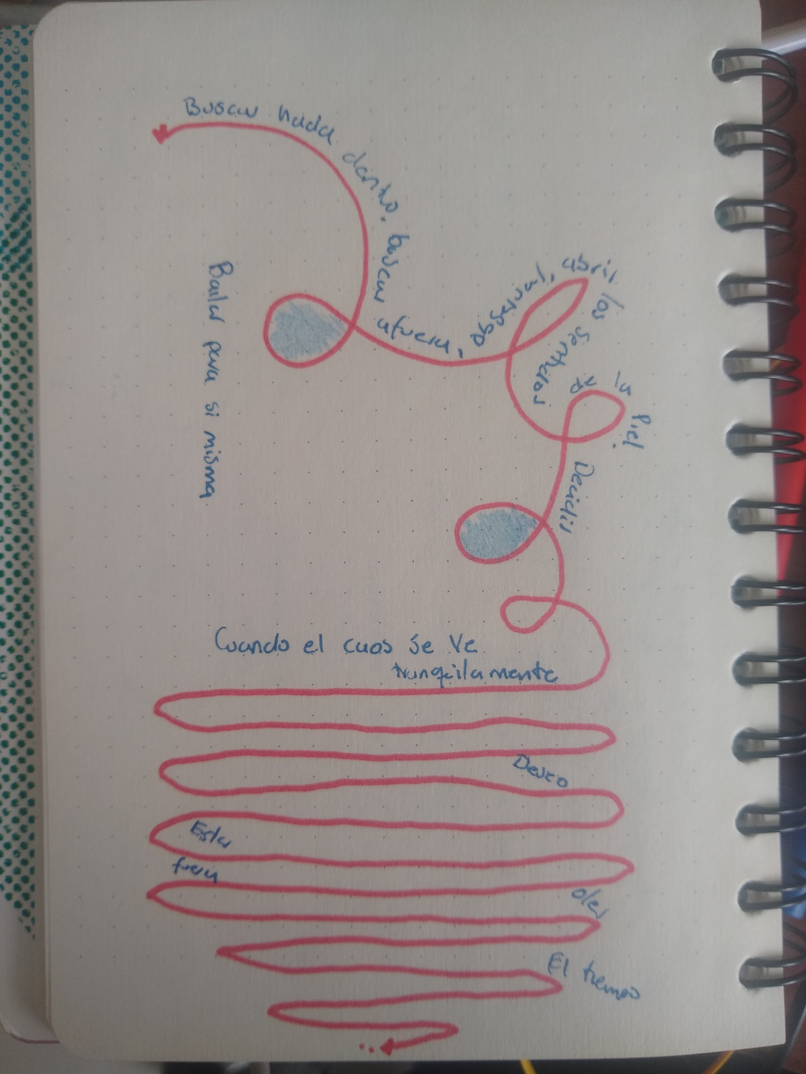 Buscar nada dentro, buscar afuera, observar, abrir los sentidos de la Piel.
Decidir
Bailar para si misma
Cuando el caos se ve
tranquilamente
Deseo
Esta
fuera
oler
El tiempo